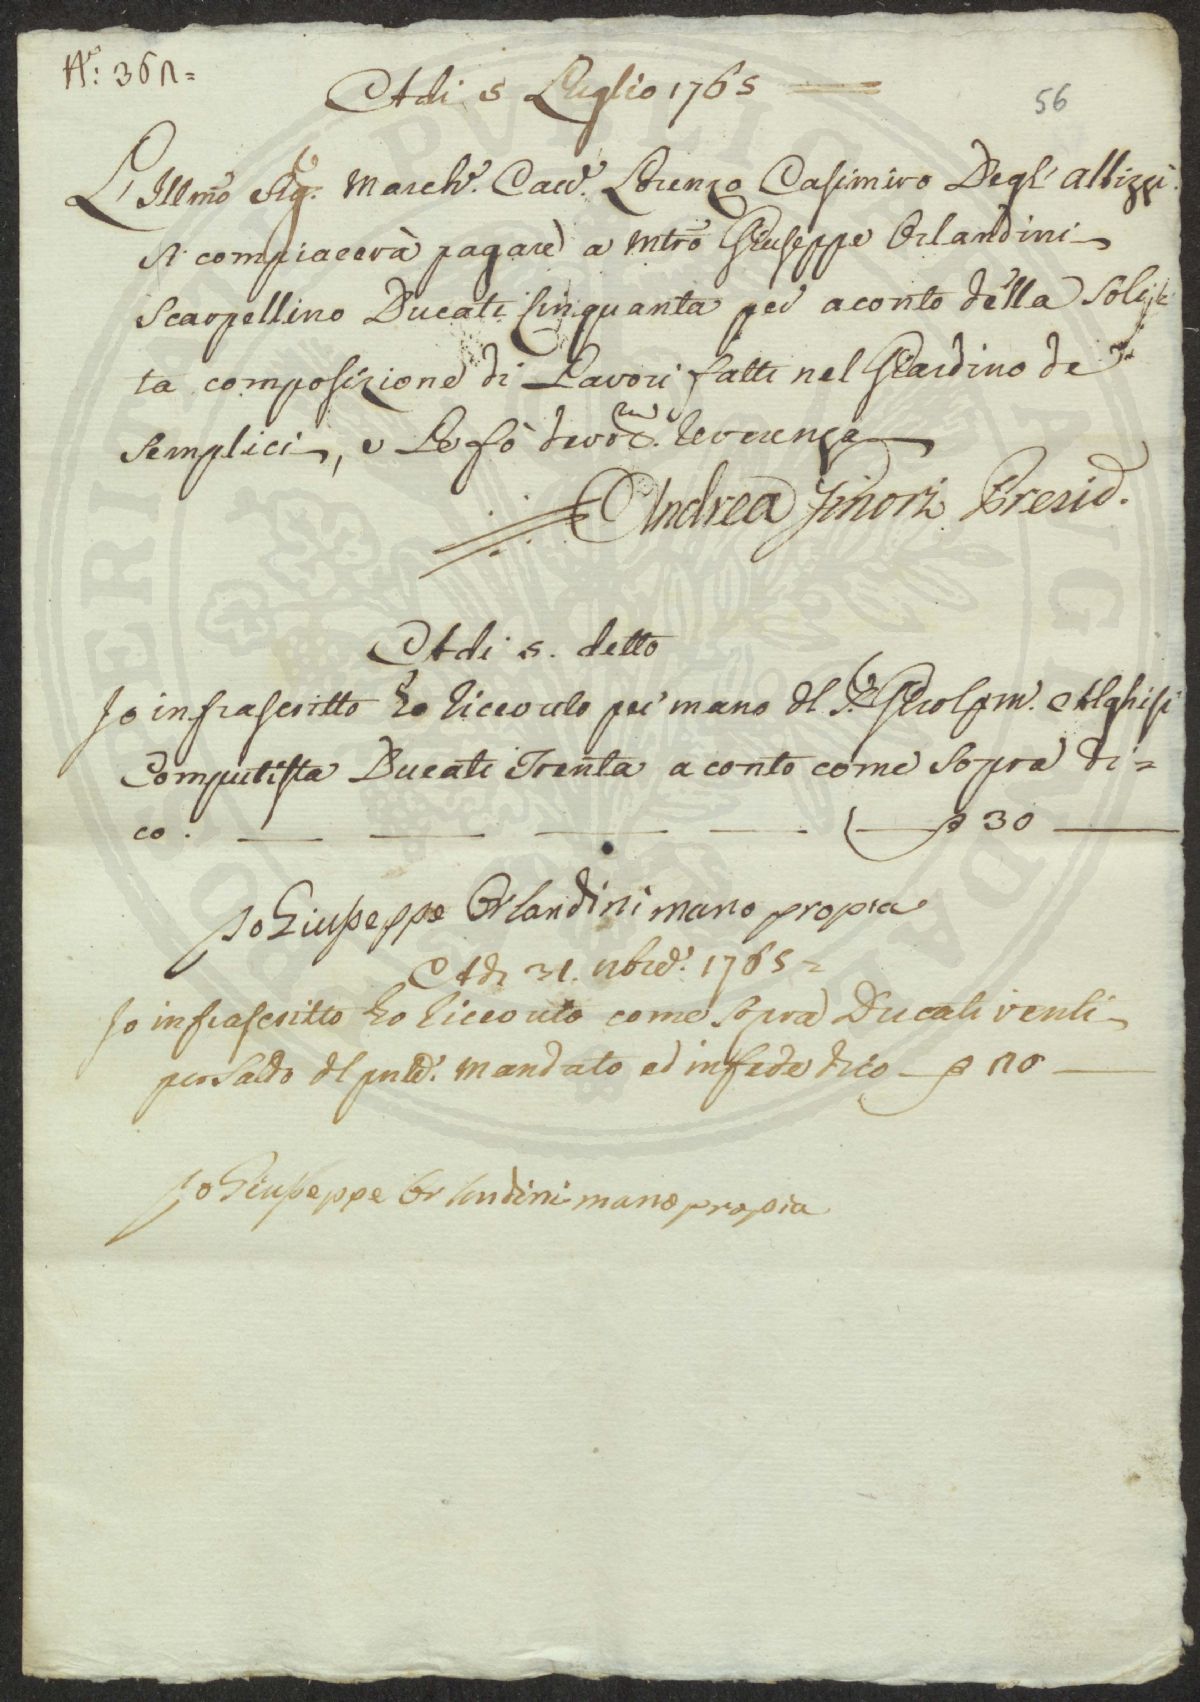 N.º: 362=
Adi 5 Luglio 1765
56
L'Illmo Sig.re March.e Cav.e Lorenzo Casimiro Degl' Albizzi
si compiacerà pagare a Mtro Giuseppe Orlandini
Scarpellino Ducati Cinquanta per a conto della Soli
ta composizione di Lavori fatti nel Giardino de
Semplici, e Le fò devotma. reverenza
Andrea Ginori Presid.
Adi 5. detto
Io infrascritto ho ricevuto per mano del Sr. Girolamo. Alghisi
Computista Ducati Trenta a conto come sopra di=
co. 30
Io Giuseppe Orlandini mano propia
Adi 21. nbre. 1765=
Io infrascritto ho ricevuto come sopra Ducati venti
per Saldo del pnte. Mandato ed in fede dico 20
Io Giuseppe Orlandini mano propia